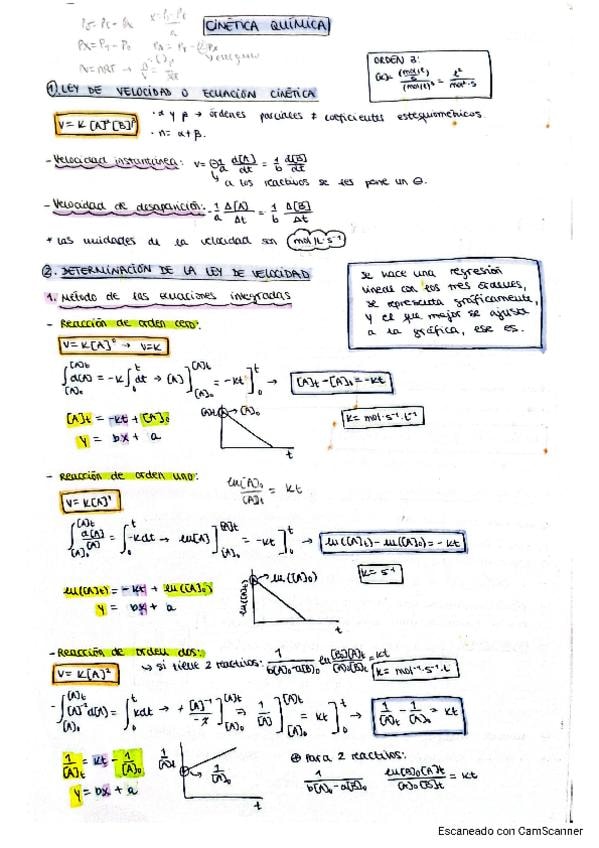 CINÉTICA QUÍMICA
ORDEN 2:
1. LEY DE VELOCIDAD O ECUACIÓN CINÉTICA
V = K [A]^α [B]^β
· α y β → órdenes parciales ≠ coeficientes estequiométricos.
· n = α + β.
- Velocidad instantánea: v = ⊖ 1/a d[A]/dt = 1/b d[B]/dt
↳ a los reactivos se les pone un ⊖.
- Velocidad de desaparición: - 1/a Δ[A]/Δt = 1/b Δ[B]/Δt
* Las unidades de la velocidad son mol·L⁻¹·s⁻¹
2. DETERMINACIÓN DE LA LEY DE VELOCIDAD
Se hace una regresión
lineal con los tres órdenes,
se representa gráficamente,
y el que mejor se ajusta
a la gráfica, ese es.
1. Método de las ecuaciones integradas
- Reacción de orden cero:
V = K[A]⁰ → V = K
∫[A]₀^[A]t d[A] = -K ∫₀^t dt → [A] ][A]₀^[A]t = -Kt ]₀^t → [A]t - [A]₀ = -Kt
[A]t = -Kt + [A]₀
y = bx + a
[A]t → [A]₀
t
K = mol·s⁻¹·L⁻¹
- Reacción de orden uno:
ln [A]₀/[A]t = Kt
V = K[A]¹
∫[A]₀^[A]t d[A]/[A] = ∫₀^t -Kdt → ln[A] ][A]₀^[A]t = -Kt ]₀^t → ln([A]t) - ln([A]₀) = -Kt
ln([A]t) = -Kt + ln([A]₀)
y = bx + a
ln([A]t)
→ ln([A]₀)
t
K = s⁻¹
- Reacción de orden dos:
↳ si tiene 2 reactivos: 1/(b[A]₀ - a[B]₀) ln [B]₀[A]t/[A]₀[B]t = Kt
V = K[A]²
K = mol⁻¹·s⁻¹·L
-∫[A]₀^[A]t [A]⁻² d[A] = ∫₀^t Kdt → + [A]⁻¹/-1 ][A]₀^[A]t ⇒ 1/[A] ][A]₀^[A]t = Kt ]₀^t → 1/[A]t - 1/[A]₀ = Kt
1/[A]t = Kt - 1/[A]₀
y = bx + a
1/[A]t
→ 1/[A]₀
t
⊕ Para 2 reactivos:
1/(b[A]₀ - a[B]₀) ln[B]₀[A]t/[A]₀[B]t = Kt
Escaneado con CamScanner